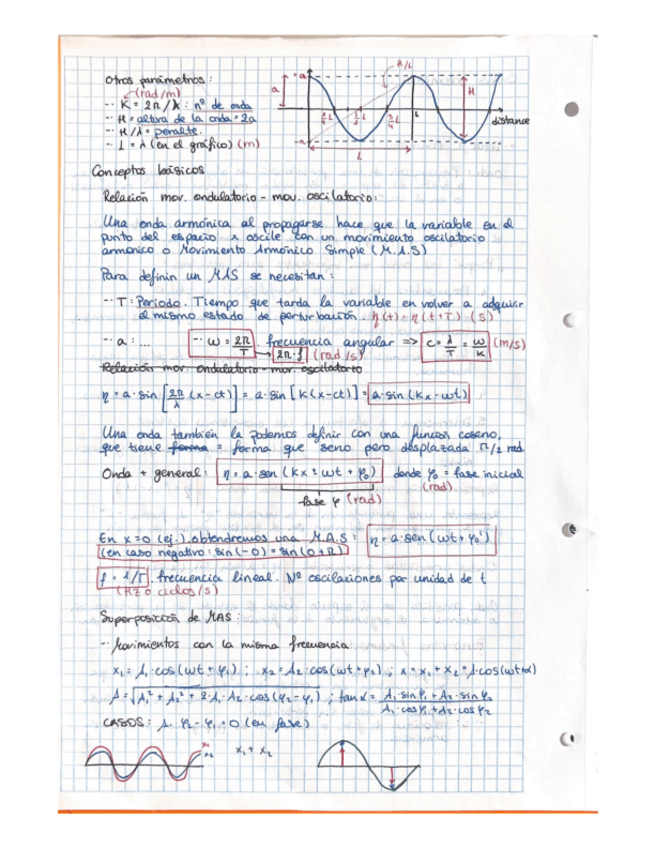 Otros parámetros:
(rad/m)
-· K = 2π/λ : nº de onda
-· H = altura de la onda = 2a
-· H/λ = peralte.
-· L = λ (en el gráfico) (m)
a
-a
a
H/L
H
L
L
distance
Conceptos básicos
Relación mov. ondulatorio - mov. oscilatorio:
Una onda armónica al propagarse hace que la variable en el
punto del espacio x oscile con un movimiento oscilatorio
armónico o Movimiento Armónico Simple (M.A.S)
Para definir un MAS se necesitan:
-· T: Periodo. Tiempo que tarda la variable en volver a adquirir
el mismo estado de perturbación. η(t) = η(t+T) (s)
-· a: ... -· ω = 2π/T frecuencia angular => c = λ/T = ω/K (m/s)
2π·f (rad/s)
Relación mov. ondulatorio - mov. oscilatorio
η = a·sin [2π/λ (x-ct)] = a·sin [K(x-ct)] = a·sin (Kx-ωt)
Una onda también la podemos definir con una función coseno,
que tiene forma = forma que seno pero desplazada π/2 rad
Onda + general: η = a·sen (Kx ± ωt + φ₀) donde φ₀ = fase inicial
(rad)
fase φ (rad)
En x=0 (ej.) obtendremos una M.A.S: η = a·sen (ωt + φ₀')
(en caso negativo: sin(-θ) = sin(θ+π)
f = 1/T. frecuencia lineal. Nº oscilaciones por unidad de t
(Hz o ciclos/s)
Superposición de MAS:
-· Movimientos con la misma frecuencia
x₁ = A₁·cos(ωt + φ₁) ; x₂ = A₂·cos(ωt + φ₂) ; x = x₁ + x₂ = A·cos(ωt+α)
A = √(A₁² + A₂² + 2·A₁·A₂·cos(φ₂-φ₁)) ; tanα = (A₁·sinφ₁ + A₂·sinφ₂)/(A₁·cosφ₁ + A₂·cosφ₂)
CASOS: 1. φ₂ - φ₁ = 0 (en fase)
x₁
x₂
x₁ + x₂